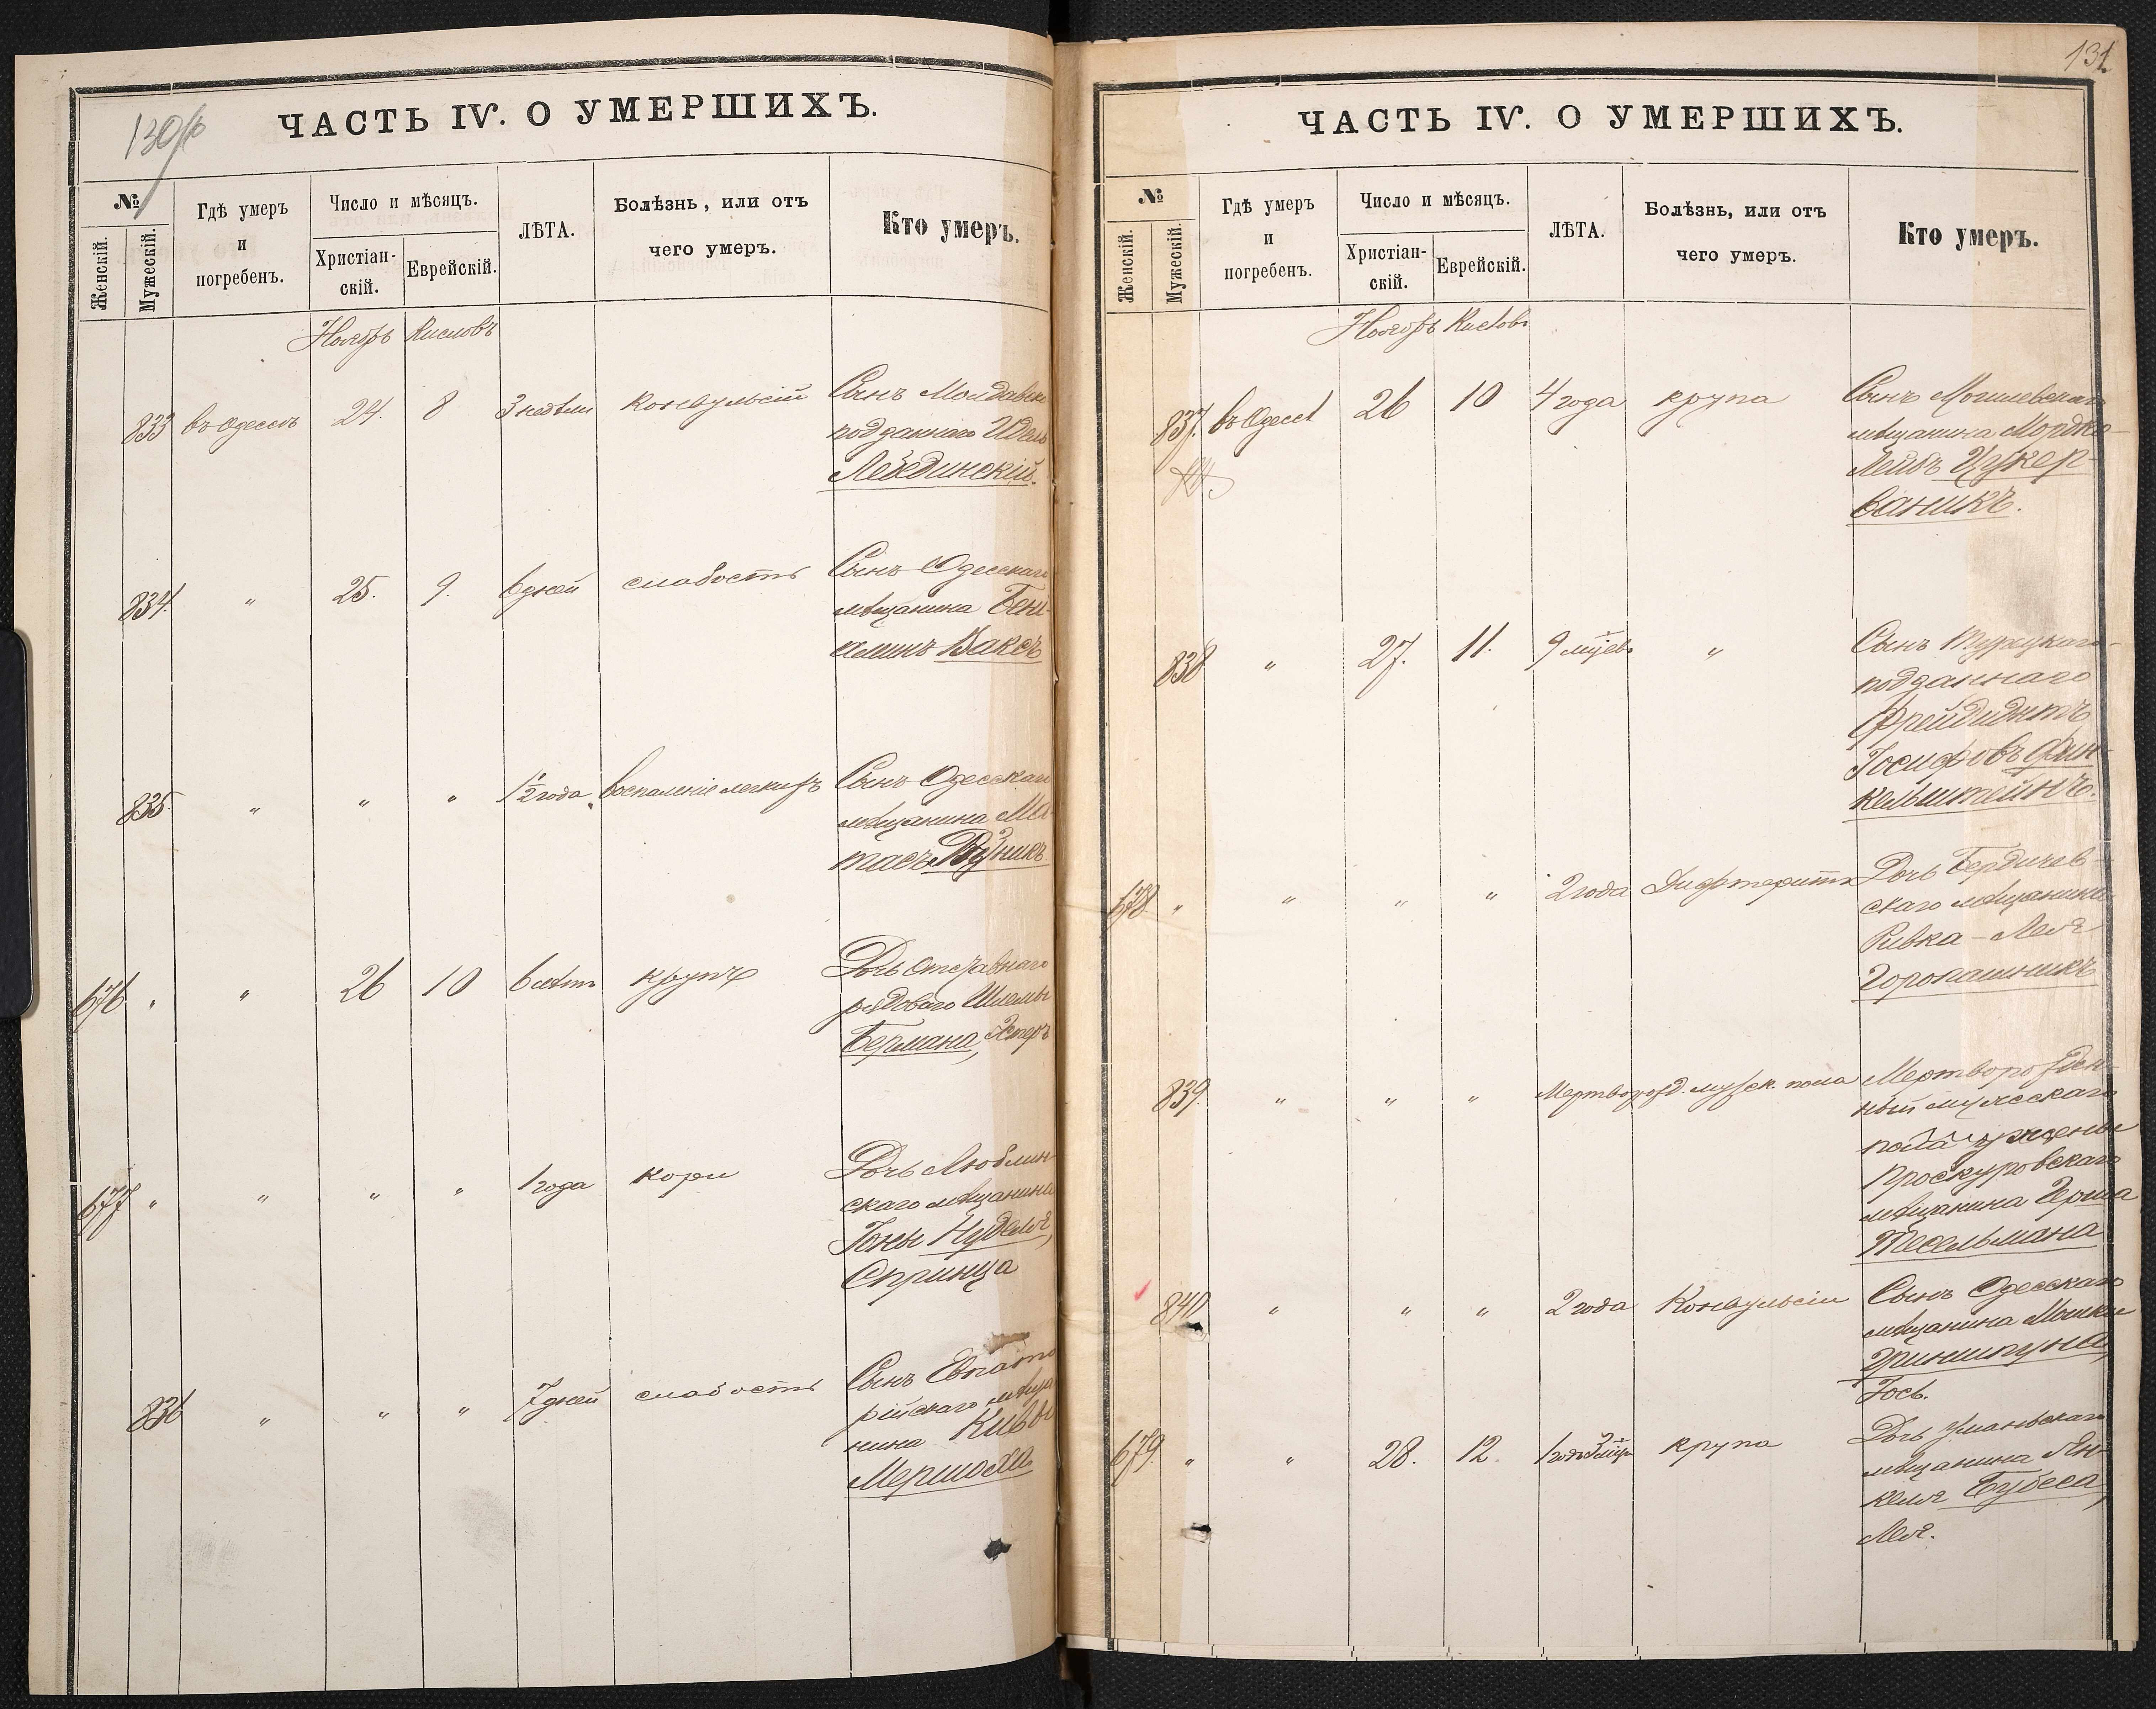 130об
ЧАСТЬ IV. О УМЕРШИХЪ.
№
Женскій.
Мужескій.
Гдѣ умеръ
и
погребенъ.
Число и мѣсяцъ.
Христіан-
скій.
Еврейскій.
ЛѢТА.
Болѣзнь, или отъ
чего умеръ.
Кто умеръ.
Ноябрь Кисловъ
833 въ Одессѣ 24. 8 3 недѣли конвульсій Сынъ Молдавск
подданнаго Идель
Лебединскій.
834. " 25. 9. 6 дней слабость Сынъ Одесскаго
мѣщанина Бені-
аминъ Ваксъ
835. " " " 1½ года воспаленіе легкихъ Сынъ Одесскаго
мѣщанина Ма-
тасъ
676 " " 26 10 6 лѣтъ крупъ Дочь отставнаго
рядоваго Шлемы
Бермана, Эстеръ
677 " " " " 1 года кори Дочь Люблин-
скаго мѣщанина
Іоны Нуделя,
Спринца
836 " " " 7 дней слабость Сынъ Евпато
рійскаго мѣща
нина Кивы
131
ЧАСТЬ IV. О УМЕРШИХЪ.
№
Женскій.
Мужескій.
Гдѣ умеръ
и
погребенъ.
Число и мѣсяцъ.
Христіан-
скій.
Еврейскій.
ЛѢТА.
Болѣзнь, или отъ
чего умеръ.
Кто умеръ.
Ноябрь Кисловъ
837. въ Одессѣ 26 10 4 года крупа Сынъ Могилевскаго
мѣщанина Мордко-
Лейбъ Цукер-
ваникъ.
838 " 27. 11. 9 мѣцевъ " Сынъ Турецкаго
подданнаго
Іосифовъ Фин-
кельштейнъ.
678 " " " " 2 года Дифтеритъ Дочь Бердичев-
скаго мѣщанина
Ривка-Лея
Горопашникъ
839. " " " Мертворожд. мужск. пола Мертворожден-
ный мужескаго
пола у жены
Проскуровскаго
мѣщанина Герша
Тесельмана
840. " " " 2 года Конвульсіи Сынъ Одесскаго
мѣщанина Мошки
Гриншпуна,
Іось.
679. " " 28. 12. 1 годъ крупа Дочь Уманьскаго
мѣщанина Ян-
келя Бубеса,
Лея.